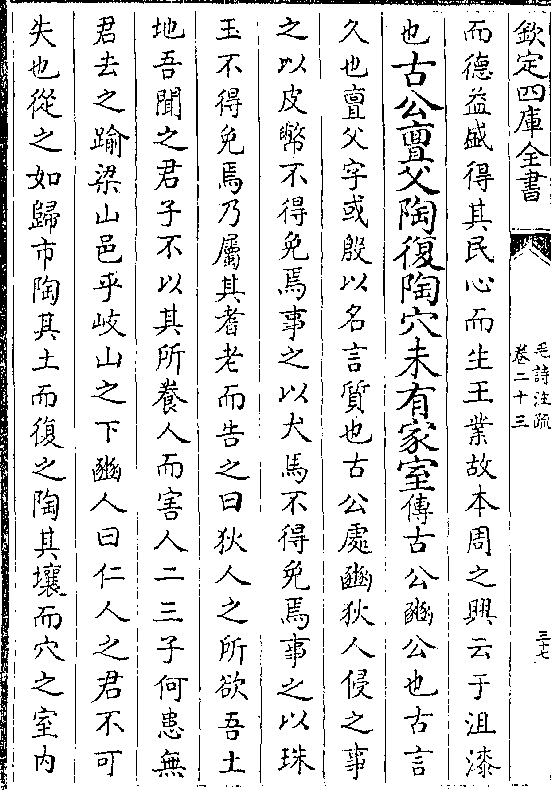 欽定四庫全書
毛詩注疏
卷二十三
三十七
而德益盛得其民心而生王業故本周之興云于沮漆
也古公亶父陶復陶穴未有家室傳古公豳公也古言
久也亶父字或殷以名言質也古公處豳狄人侵之事
之以皮幣不得免焉事之以犬馬不得免焉事之以珠
玉不得免焉乃屬其耆老而告之曰狄人之所欲吾土
地吾聞之君子不以其所養人而害人二三子何患無
君去之踰梁山邑乎岐山之下豳人曰仁人之君不可
失也從之如歸市陶其土而復之陶其壤而穴之室內